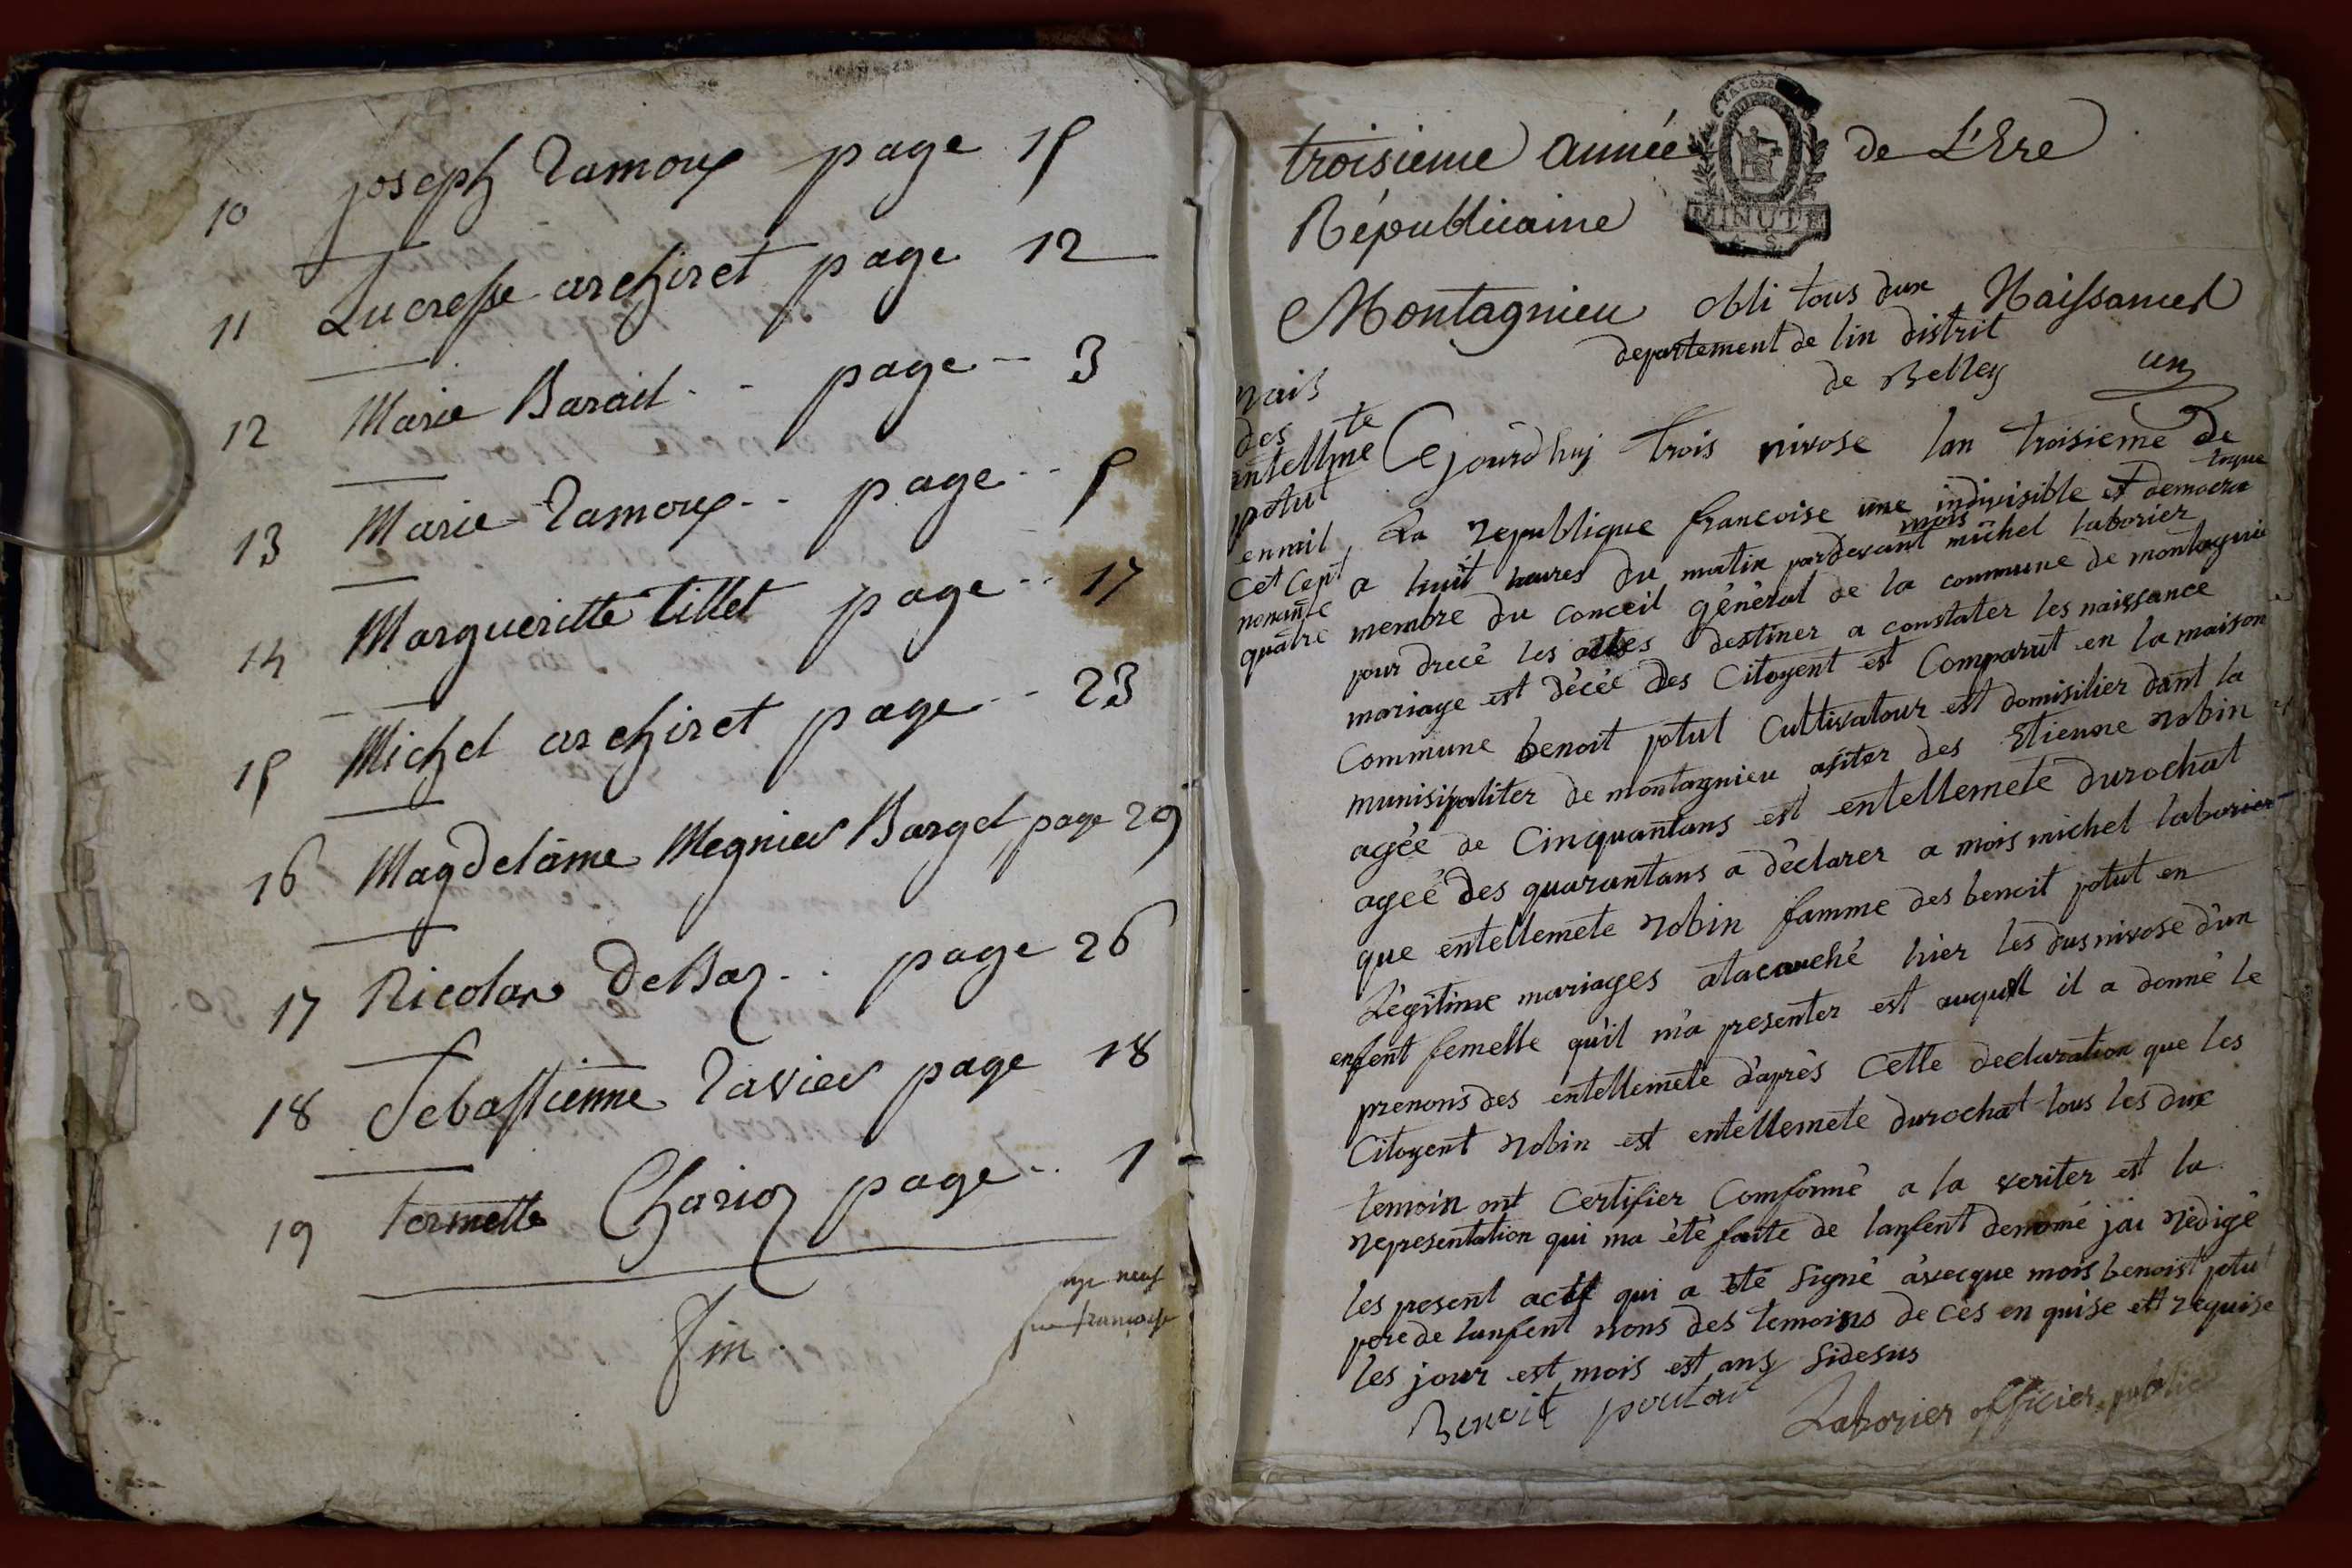 10 joseph Ramoux page 15
11 Lucresse archiret page 12
12 Marie Barail page 3
13 Marie Ramoux page 5
14 Margueritte tillet page 17
15 Michel archiret page 23
16 Magdelaine Megnier Barget page 29
17 Nicolas page 26
18 Sebastienne Ravier page 18
19 page 1
fin
neuf
françoise
troisieme année de L'Ere
Républicaine
MINUTE
Montagnieu obli tous dux Naissances
departement de lin distrit
de Belley un
nais
des
entellmete
potut
en mil
cet cept
nonante
quatre
Cejourdhuy trois nivose lan troisieme de
La republique francoise une indivisible et democra
tique
a huit heures du matin pardevant mois michel laborier
membre du conceil géneral de la commune de montagnie
pour drecé les actes destiner a constater les naissance
mariage est décée des Citoyent est Comparut en la maison
Commune benoit potut Cultivatour est domisilier dant la
munisipaliter de montagnieu asiter des Etienne robin
agée de Cinquantans est entellemete durochat
ageé des quarantans a déclarer a mois michel laborier
que entellemete robin famme des benoit potut en
Légitime mariages atacouché hier les dus nivose d'un
enfent femelle qu'il m'a presenter est auquel il a donné le
prenons des entellemete d'après Cette declaration que les
Citoyent robin est entellemete durochat tous les dux
temoin ont Certifier Comformé a la veriter est la
representation qui ma été faite de lanfent denomé jai rédigé
les present acte qui a été signé avecque mois benoist potut
pere de lanfent nons des temoins de cès en quise est requise
les jour est mois est ans sidesus
Benoit
Laborier officier public